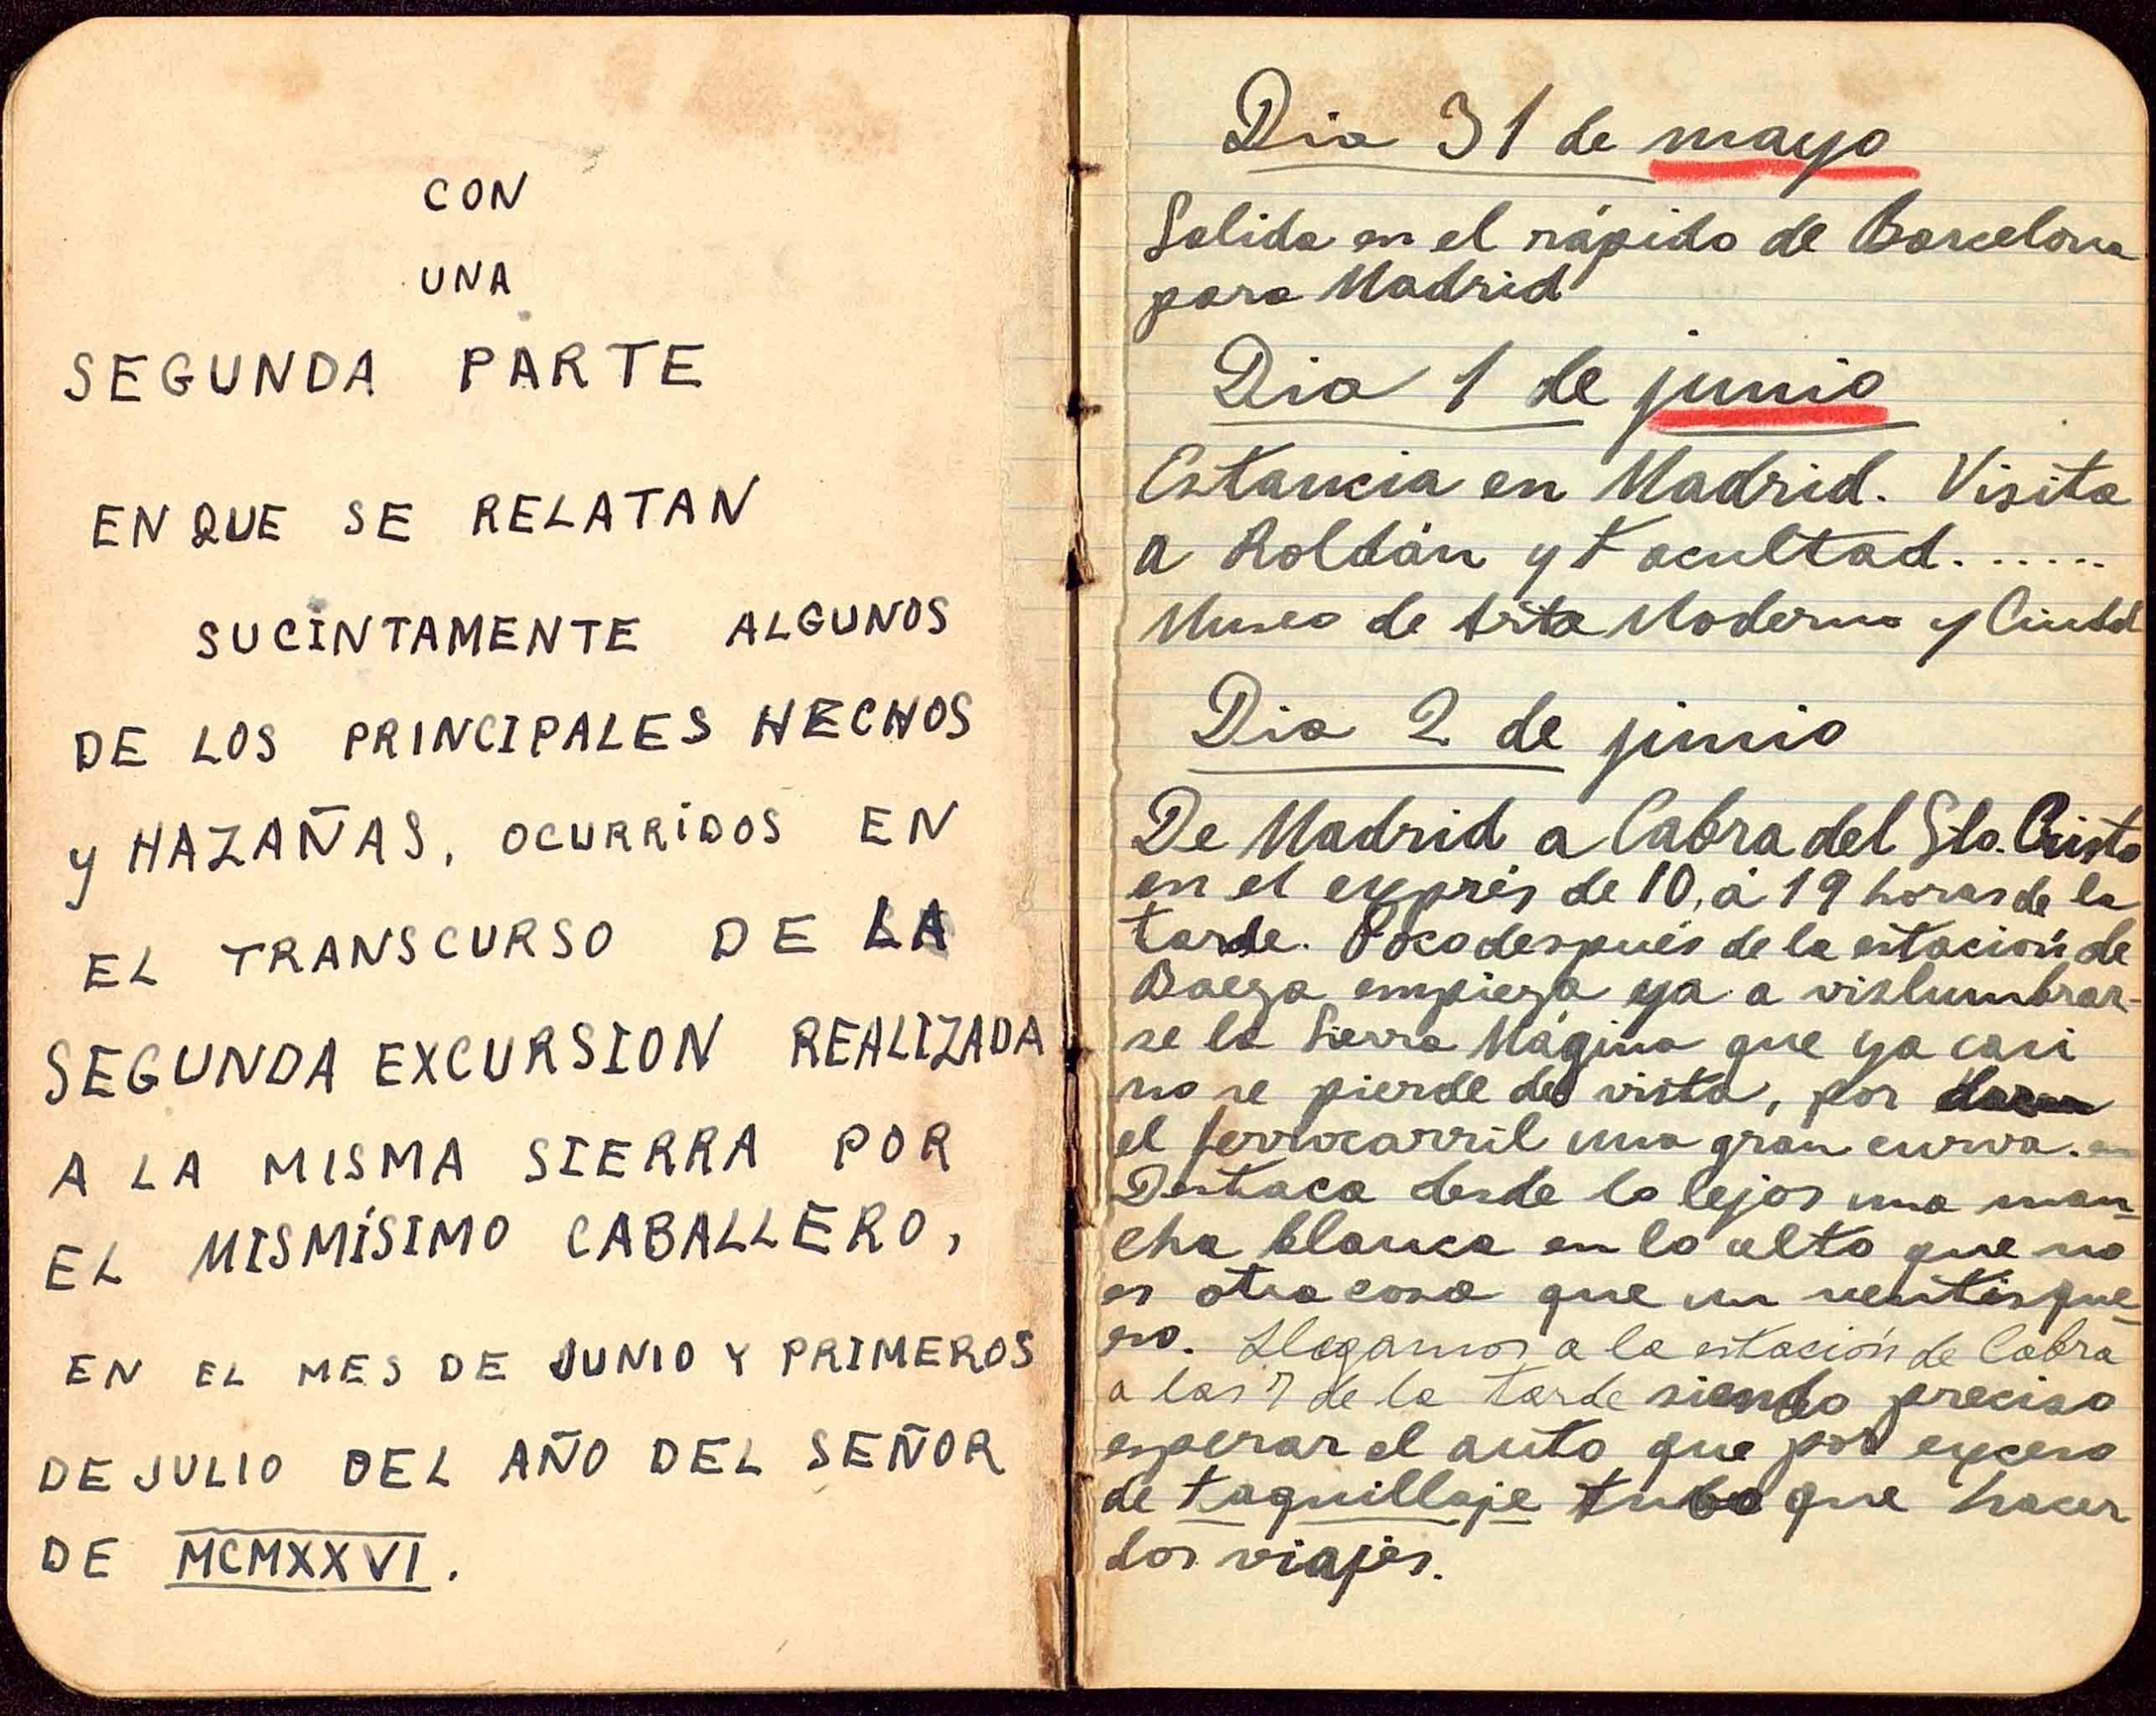 CON
UNA
SEGUNDA PARTE
EN QUE SE RELATAN
SUCINTAMENTE ALGUNOS
DE LOS PRINCIPALES HECHOS
y HAZAÑAS, OCURRIDOS EN
EL TRANSCURSO DE LA
SEGUNDA EXCURSION REALIZADA
A LA MISMA SIERRA POR
EL MISMÍSIMO CABALLERO,
EN EL MES DE JUNIO Y PRIMEROS
DE JULIO DEL AÑO DEL SEÑOR
DE MCMXXVI.
Dia 31 de mayo
Salida en el rápido de Barcelona
para Madrid
Dia 1 de junio
Estancia en Madrid. Visita
a Roldán y Facultad.......
Museo de Arte Moderno y Ciudad
Dia 2 de junio
De Madrid a Cabra del Sto. Cristo
en el exprés de 10, á 19 horas de la
tarde. Poco después de la estación de
Baeza empieza ya a vislumbrar-
se la Sierra Mágina que ya casi
no se pierde de vista, por
el ferrocarril una gran curva.
Destaca desde lo lejos una man-
cha blanca en lo alto que no
es otra cosa que un ventisque-
ro. Llegamos a la estación de Cabra
a las 7 de la tarde siendo preciso
esperar el auto que por exceso
de taquillaje tubo que hacer
dos viajes.